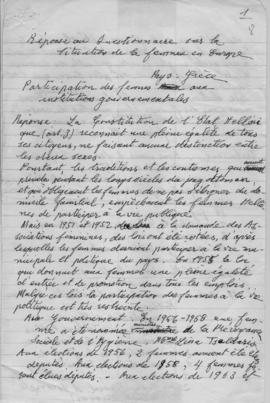 1
Réponse au Questionnaire sur la
Situation de la femme en Europe
Pays - Grèce
Participation des femmes aux
institutions gouvernementales
Réponse La Constitution de l'Etat Hellène
que (art. 3) reconnait une pleine égalité de tous
ses citoyens, ne faisant aucune destinction entre
les deux sexes.
Pourtant les traditions et les coutumes qui avaient
prévalu pendant les longs siècles du joug ottoman
et qui obligeait les femmes de ne pas s'éloigner du do-
micile familial, empêchaient les femmes Hellènes
de participer à la vie publique.
Mais en 1951 et 1952 à la demande des As-
sociations féminines, des lois ont été votées, d'après
lesquelles les femmes devaient participer à la vie mu-
nicipale et politique du pays. En 1955 la loi
que donnait aux femmes une pleine égalité
d'entrée et de promotion dans tous les emplois.
Malgré ces lois la participation des femmes à la vie
politique est très restreinte.
Au Gouvernement. En 1956-1958 une fem-
me a été nommée ministre de la Prévoyance
Sociale et de l'Hygiène. Mme Lina Tsaldaris
Aux élections de 1956, 2 femmes avaient été élu
députés. Aux élections de 1958, 4 femmes fu-
rent élues députés. - Aux élections de 1963 et